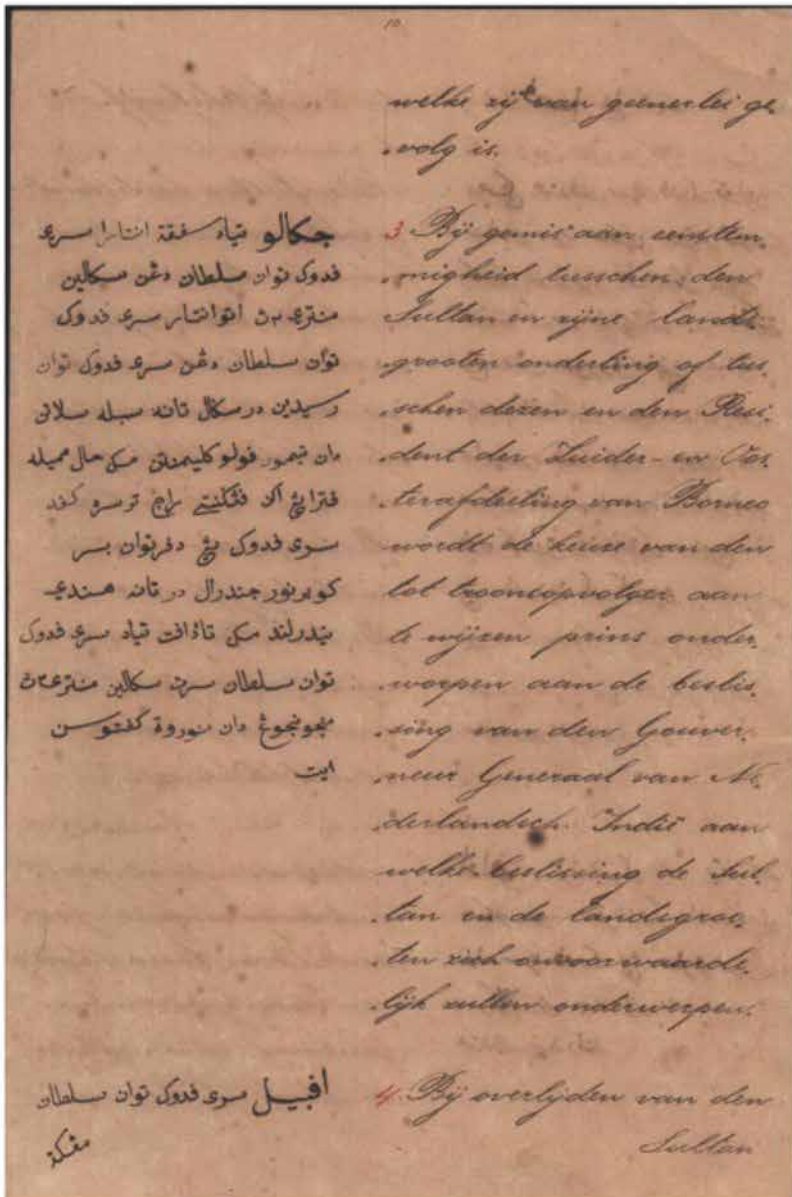 10
جكالو تياد سفقة انتارا سري
فدوک توان سلطان دڠن سکالين
منتري٢ث اتوانتار سري فدوک
توان سلطان دڠن سري فدوک توان
رسيدين در سکال تانه سبله سلاتن
دان تيمور فولو کليمنتن مک حال مميله
فترا يڠ اکن ڤڠݢنتي راج ترسره کفد
سري فدوک يڠ دفرتوان بسر
کوبرنور جندرال در تانه هندي
نيدرلند مک تادافت تياد سري فدوک
توان سلطان سرت سکالين منتري٢ث
منجونجوڠ دان منوروة کفتوسن
ايت
افبيل سري فدوک توان سلطان
مڠکة
welke zij van geenerlei ge-
volg is.
3 Bij gemis aan eenstem-
migheid tusschen den
Sultan en zijne lands-
grooten onderling of tus-
schen dezen en den Resi-
dent der Zuider- en Oos-
terafdeeling van Borneo
wordt de keuze van den
tot troonsopvolger aan
te wijzen prins onder-
worpen aan de beslis-
sing van den Gouver-
neur Generaal van Ne-
derlandsch Indië aan
welke beslissing de Sul-
tan en de landsgroo-
ten zich onvoorwaarde-
lijk zullen onderwerpen.
4. Bij overlijden van den
Sultan